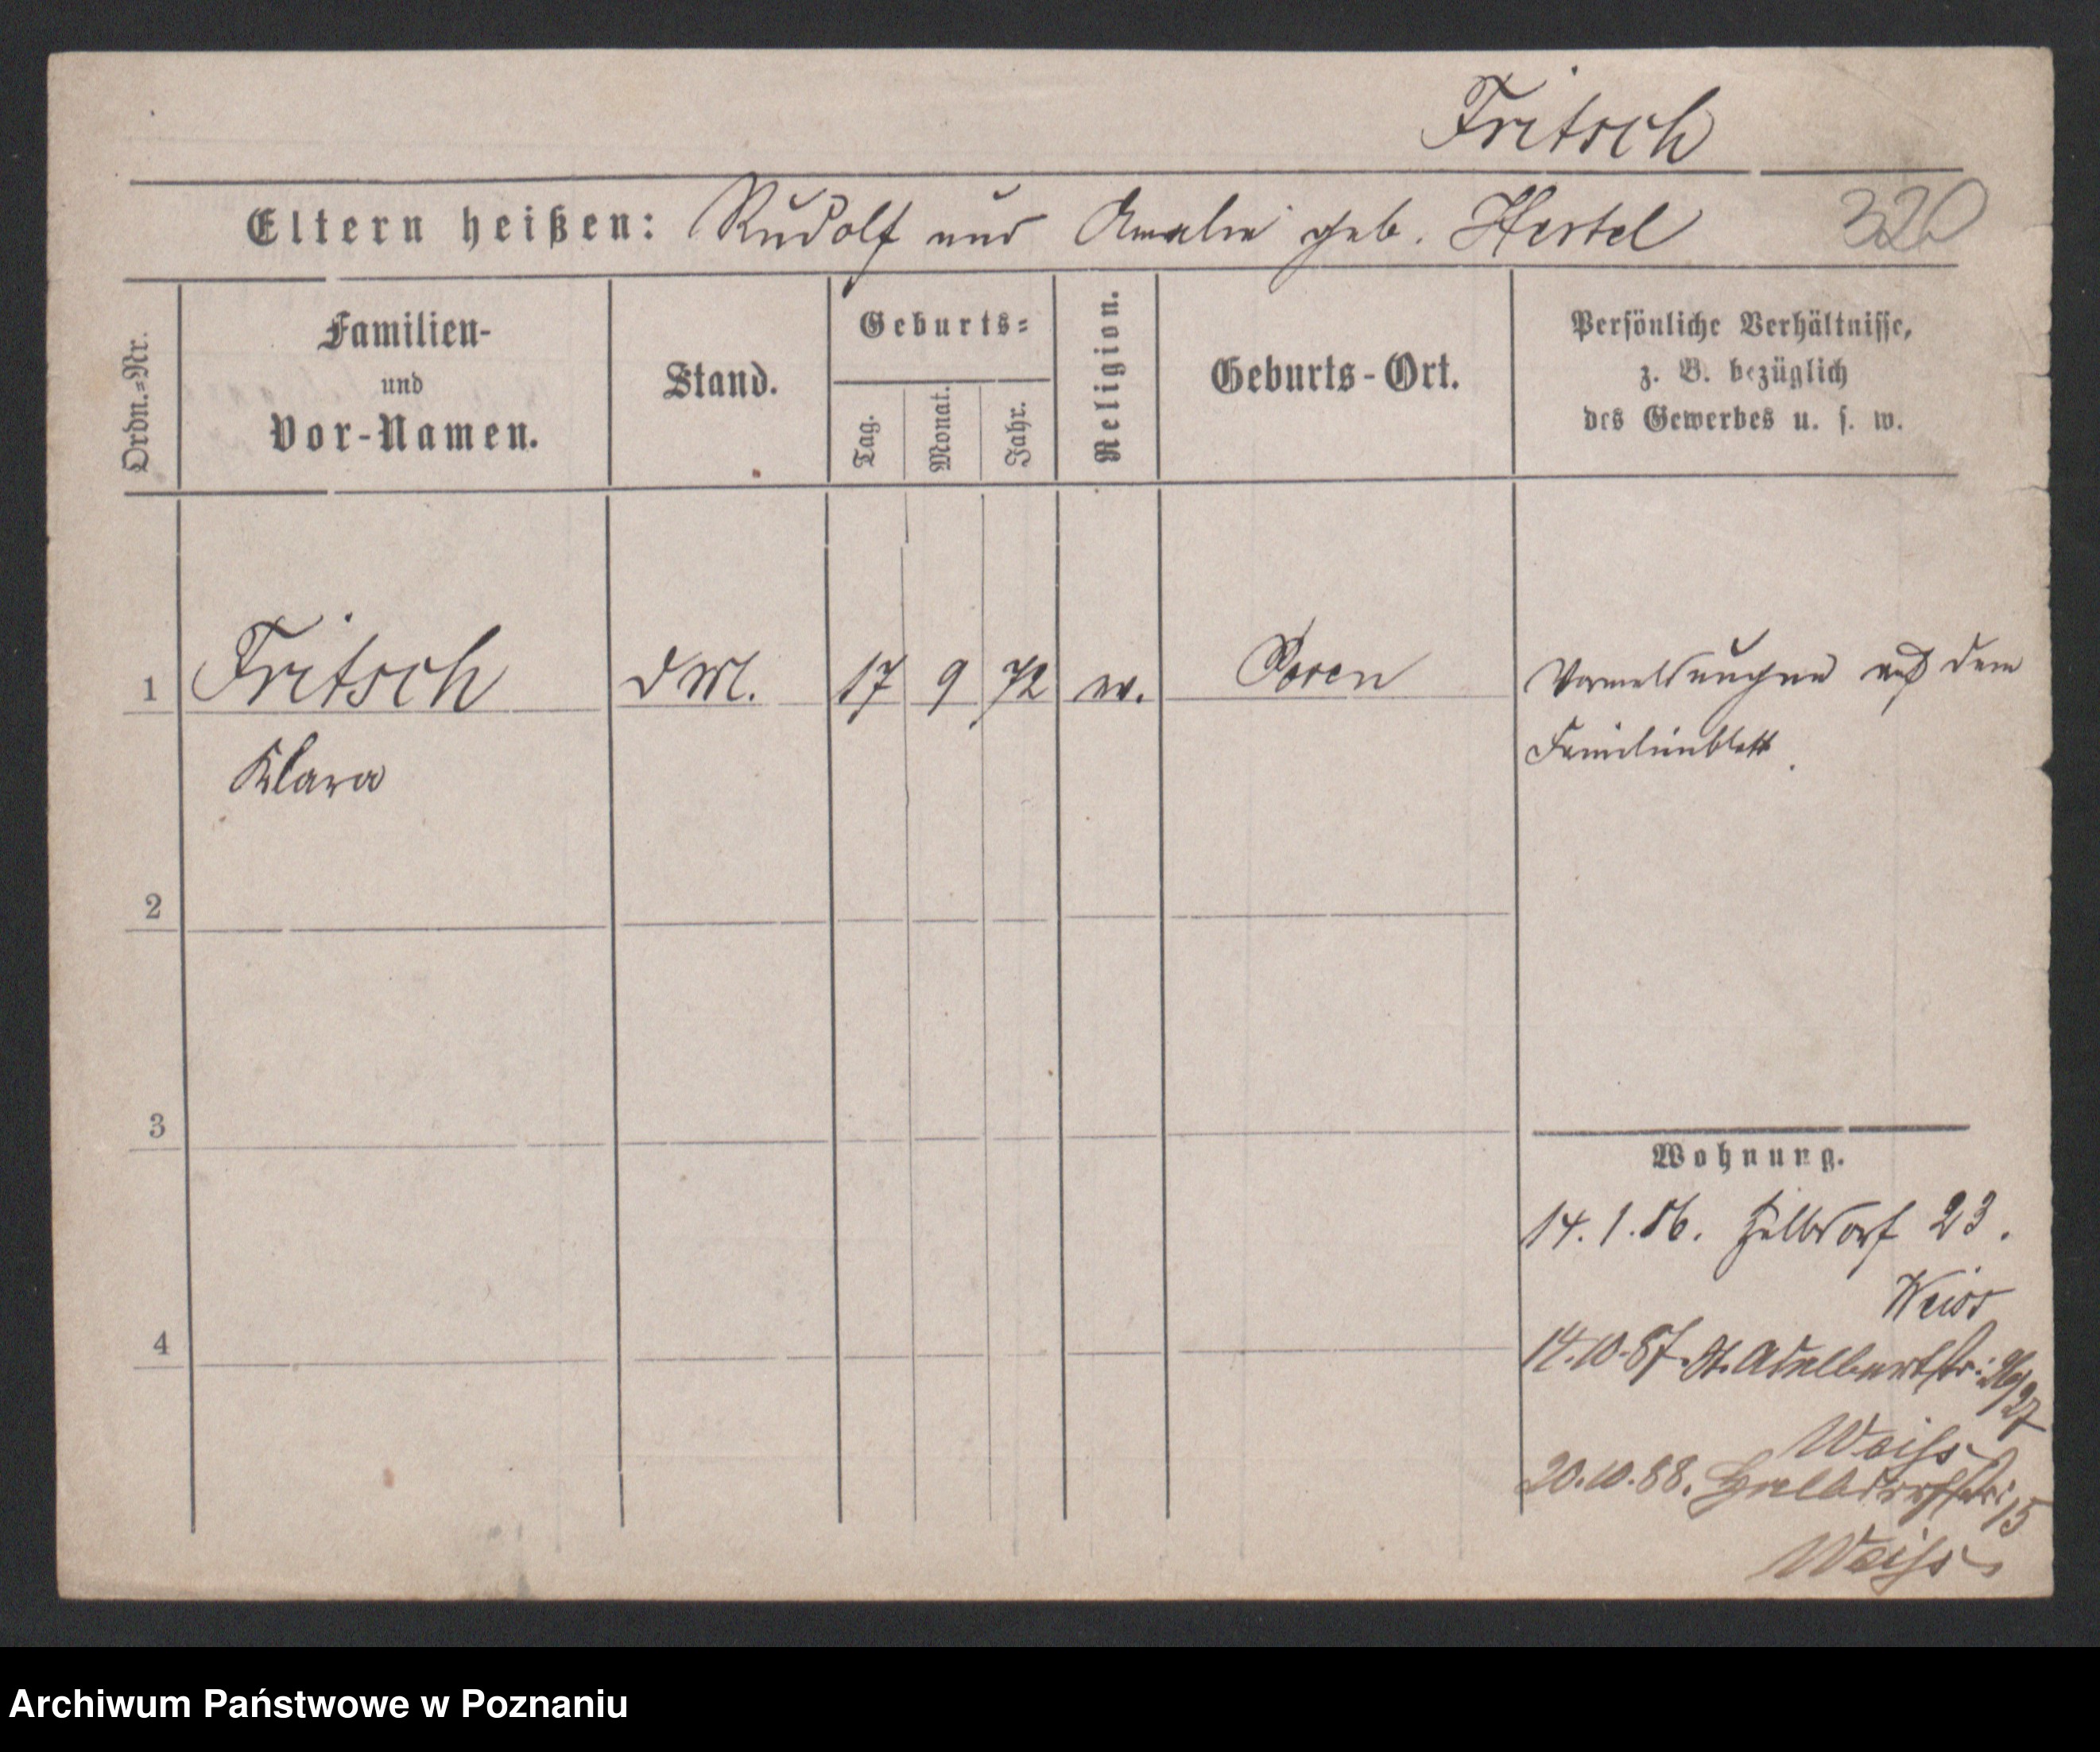 Fritsch
Eltern heißen: Rudolf und Amalie geb. Hertel 320
Ordn.=Nr.
Familien-
und
Vor-Namen.
Stand.
Geburts=
Tag.
Monat.
Jahr.
Religion.
Geburts-Ort.
Persönliche Verhältnisse,
z. B. bezüglich
des Gewerbes u. s. w.
1 Fritsch 17 9 72 ev. Posen Vormeldungen auf dem
Klara Familienblatt.
2
3
4
Wohnung.
14.1.86. Halbdorf 23.
Weiss
14.10.87. St. Adalbertstr: 26/27
Weiss
20.10.88. Halbdorfstr: 15
Weiss
Archiwum Państwowe w Poznaniu